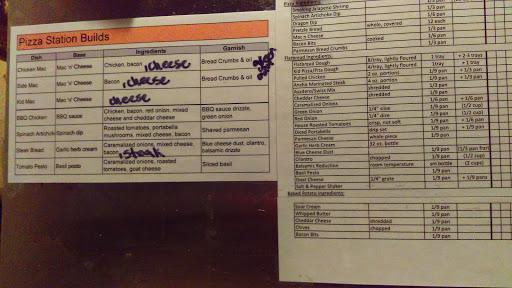 Pizza Station Builds
Dish Base Ingredients Garnish
Chicken Mac Mac 'n' Cheese Chicken, bacon, cheese Bread Crumbs & oil
Side Mac Mac 'n' Cheese Bacon, cheese Bread Crumbs & oil
Kid Mac Mac 'n' Cheese cheese
BBQ Chicken BBQ sauce Chicken, bacon, red onion, mixed BBQ sauce drizzle,
cheese and cheddar cheese green onion
Spinach Artichoke Spinach dip Roasted tomatoes, portabella Shaved parmesan
mushrooms, mixed cheese, bacon
Steak Bread Garlic herb cream Caramelized onions, mixed cheese, Blue cheese dust, cilantro,
bacon, steak balsamic drizzle
Tomato Pesto Basil pesto Caramelized onions, roasted Sliced basil
tomatoes, goat cheese
Smoking Jalapeno Shrimp 1/9 pan
Spinach Artichoke Dip 1/3 pan
Dip whole, covered 12 each
Pretzel Bread 1/3 pan
Mac n Cheese 1/6 pan
Bacon Bits cooked 1/3 pan
Parmesan Bread Crumbs
Flatbread Ingredients:
Flatbread Dough 6/tray, lightly floured 1 tray
Kid Pizza/Pita Dough 4/tray, lightly floured 1 tray
Pulled Chicken 2 oz. portions 1/9 pan
Marinated Steak 4 oz. portion 1/9 pan
Mix shredded 1/3 pan
Cheddar Cheese shredded 1/6 pan
Caramelized Onions 1/6 pan
Green Onion 1/4" slice 1/9 pan (1/2 cup)
Red Onion 1/4" dice 1/9 pan (1/2 cup)
House Roasted Tomatoes crisp, not soft 1/9 pan + 1/6 pan
Diced Portabella drip set 1/9 pan + 1/9 pan
Parmesan Cheese whole piece 1/9 pan
Garlic Herb Cream 32 oz. bottle
Blue Cheese Dust 1/9 pan
Cilantro chopped 1/9 pan (1/2 cup)
Balsamic Reduction room temperature (2 cups)
Basil Pesto 1/9 pan
Goat Cheese 1/4" grate 1/9 pan + 1/9 pans
Salt & Pepper Shaker
Baked Potato Ingredients:
Sour Cream 1/9 pan
Whipped Butter 1/9 pan
Cheddar Cheese shredded 1/9 pan
Chives chopped 1/9 pan
Bacon Bits 1/9 pan